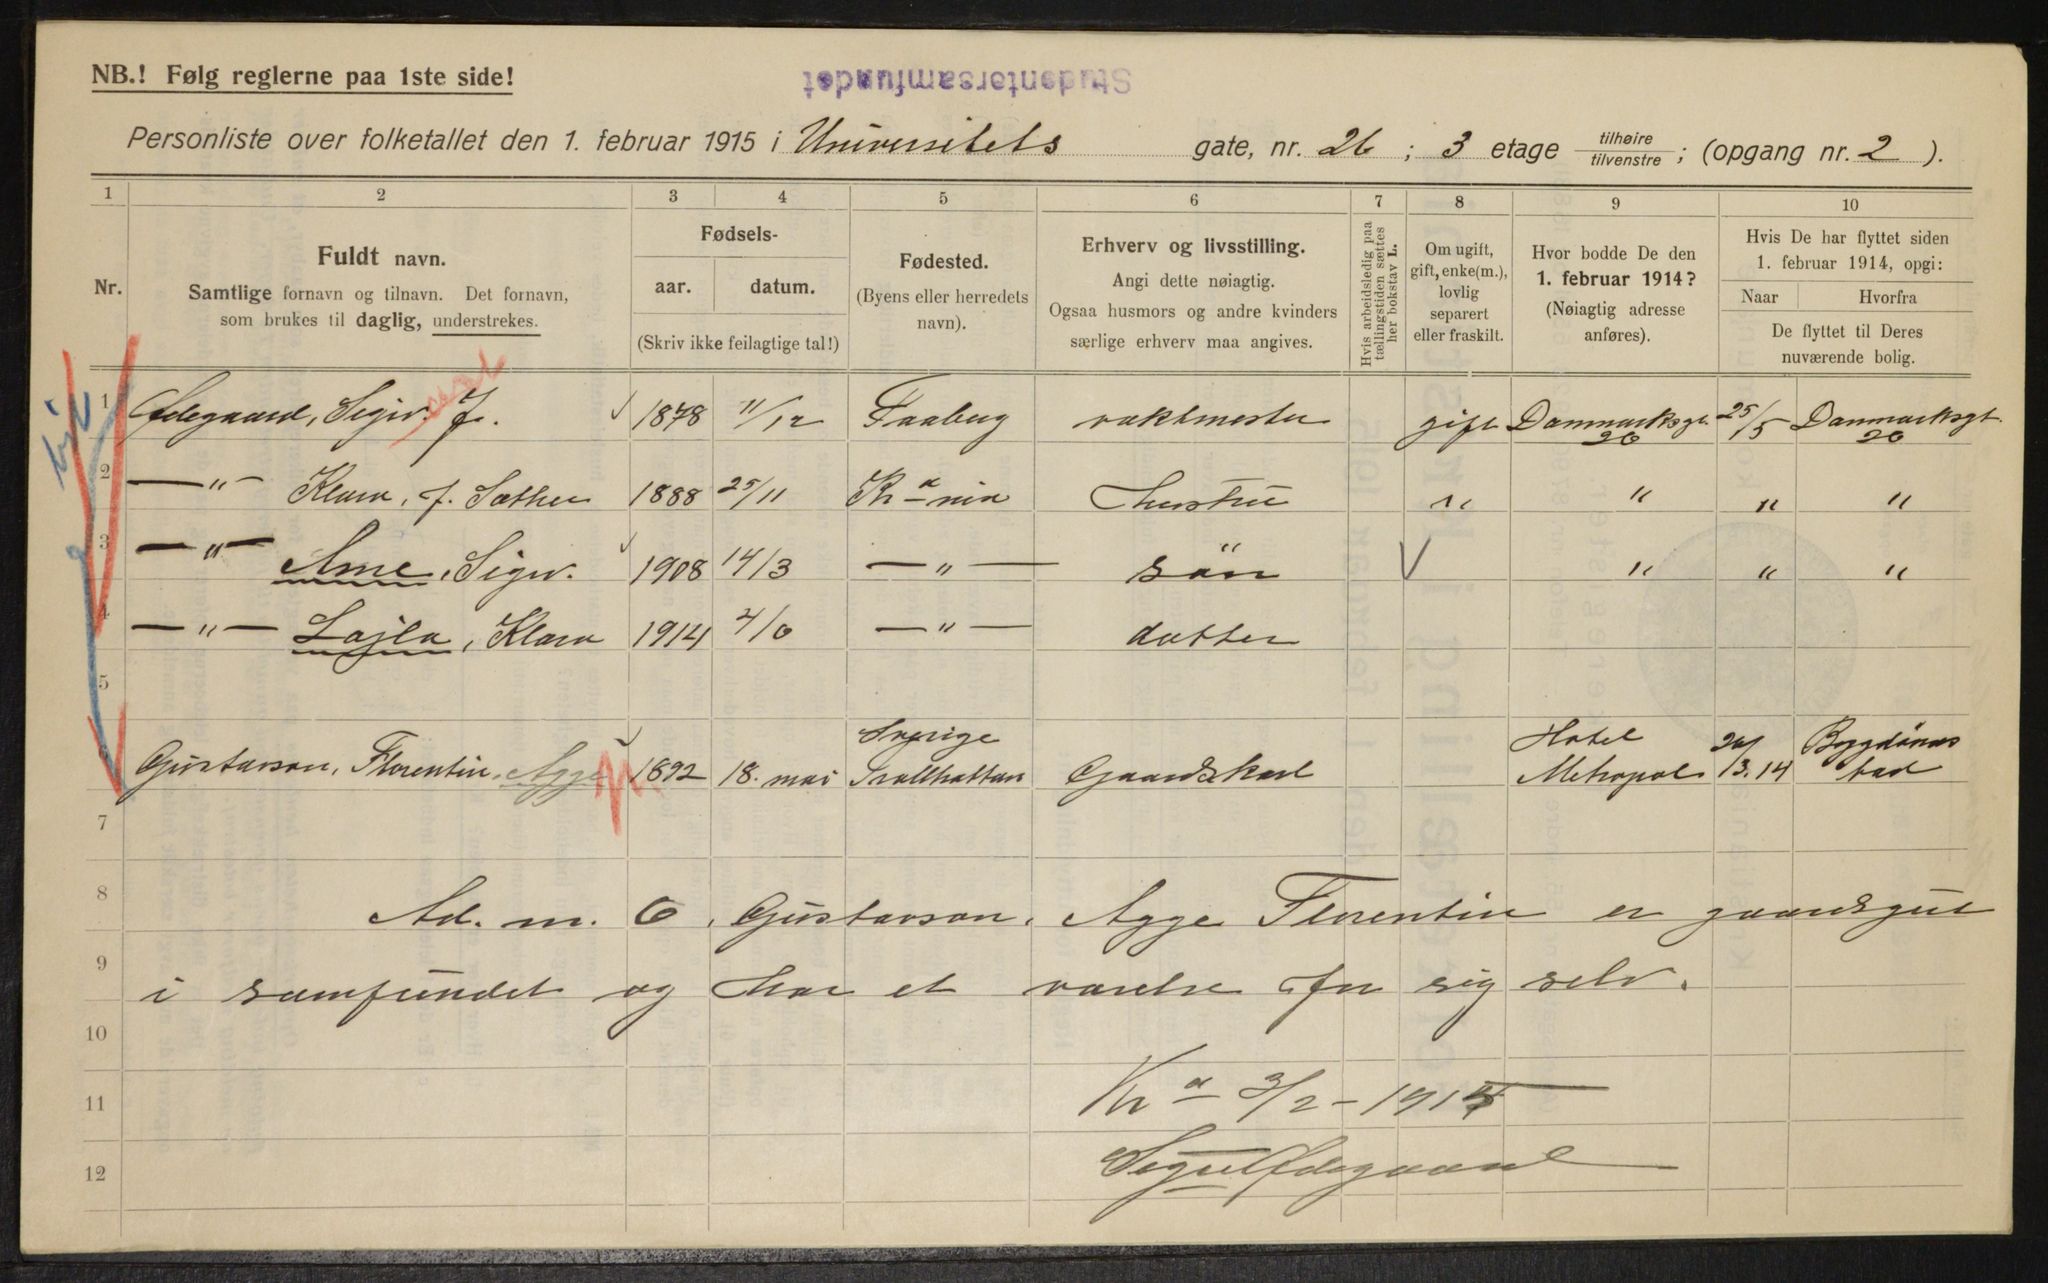 NB.! Følg reglerne paa 1ste side!
Studentersamfundet
Personliste over folketallet den 1. februar 1915 i Universitets gate, nr. 26 ; 3 etage tilhøire/tilvenstre ; (opgang nr. 2 ).
1 2 3 4 5 6 7 8 9 10
Nr.
Fuldt navn.
Samtlige fornavn og tilnavn. Det fornavn,
som brukes til daglig, understrekes.
Fødsels-
aar. datum.
(Skriv ikke feilagtige tal!)
Fødested.
(Byens eller herredets
navn).
Erhverv og livsstilling.
Angi dette nøiagtig.
Ogsaa husmors og andre kvinders
særlige erhverv maa angives.
Hvis arbeidsledig paa
tællingstiden sættes
her bokstav L.
Om ugift,
gift, enke(m.),
lovlig
separert
eller fraskilt.
Hvor bodde De den
1. februar 1914?
(Nøiagtig adresse
anføres).
Hvis De har flyttet siden
1. februar 1914, opgi:
Naar Hvorfra
De flyttet til Deres
nuværende bolig.
1 Ødegaard, Sigv. J. 1878 11/12 Faaberg vaktmester gift Danmarksgt. 20 25/5 Danmarksgt. 20
2 —"— Klara, f. Sæther 1888 25/11 Kr a nia hustru " " " "
3 —"— Arne, Sigv. 1908 14/3 —"— søn " " "
4 —"— Lajla, Klara 1914 4/6 —"— datter
5
6 Gustavson, Florentin, Agge 1892 18. mai Sverige Trollhättan Gaardskarl Hotel Metropol 13.14 Bygdønes bad
7
8 Ad. m. 6, Gustavson, Agge Florentin er gaardsgut
9 i samfundet og har et værelse for sig selv.
10
11 Kr a 3/2 – 1915
12 Sigv. Ødegaard